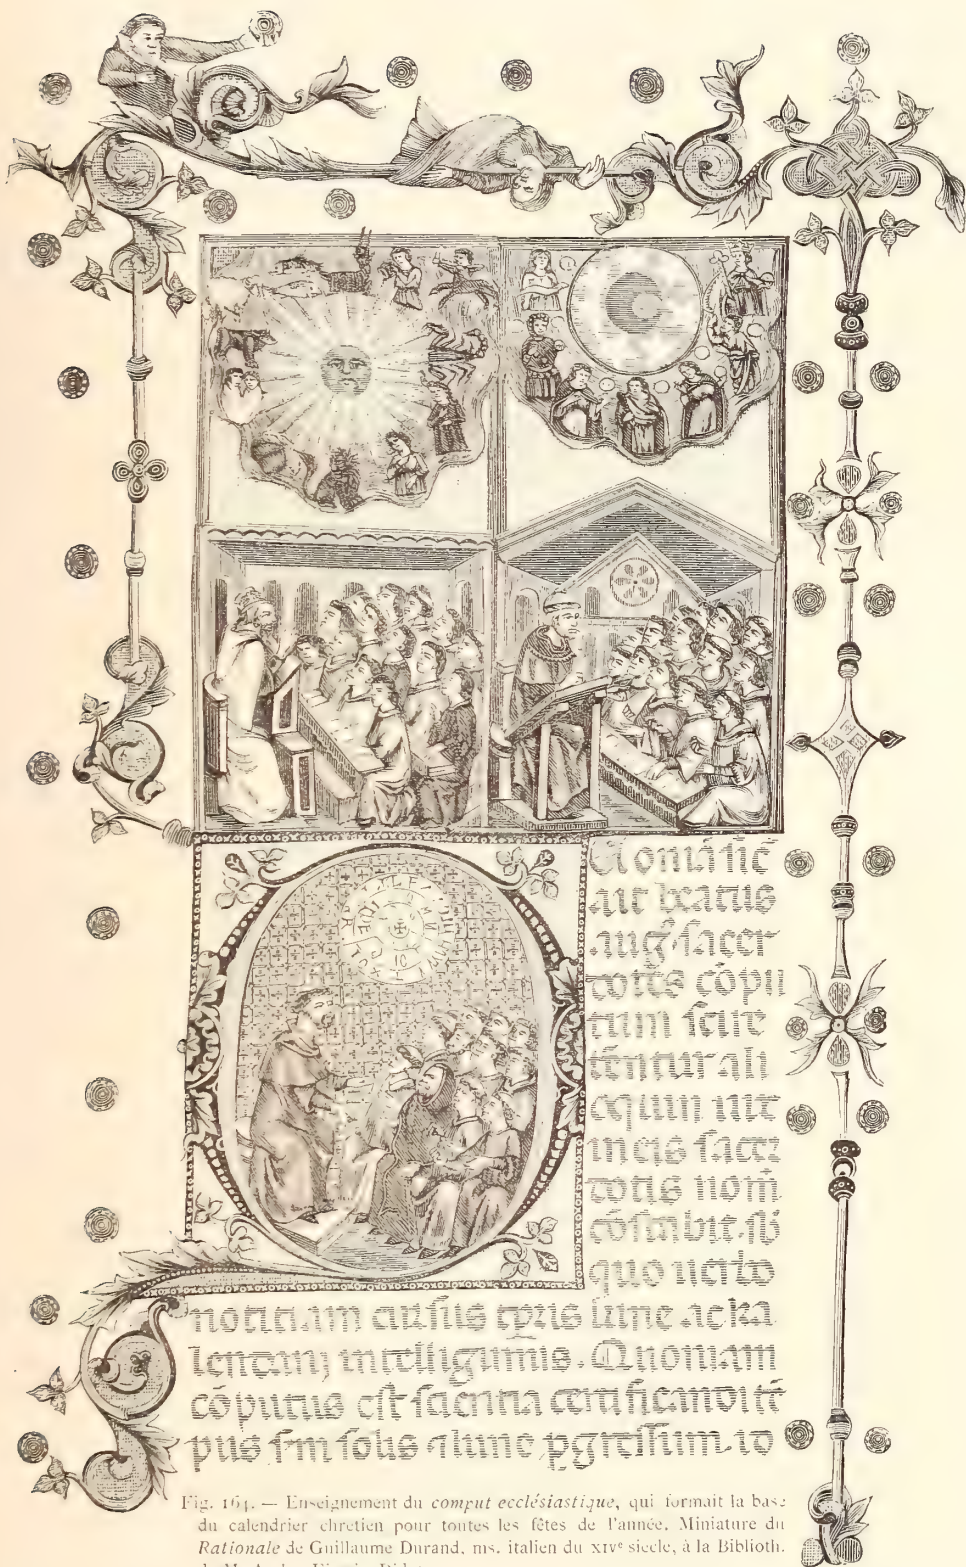 Uoniā sic̄
ait beatus
aug. sacer
dotes cōpu
tum scire
tēntur ali
oquin uix
in eis sacer
dotis nom̄
quo uerbo
notitiam cursus lune ac ka
lendarij intelligimus. Quoniam
cōputus est sciencia certificandi tē
pus sm̄ solis lune id
Fig. 164. — Enseignement du comput ecclésiastique, qui formait la base
du calendrier chrétien pour toutes les fêtes de l'année. Miniature du
Rationale de Guillaume Durand, ms. italien du XIVe siècle, à la Biblioth.